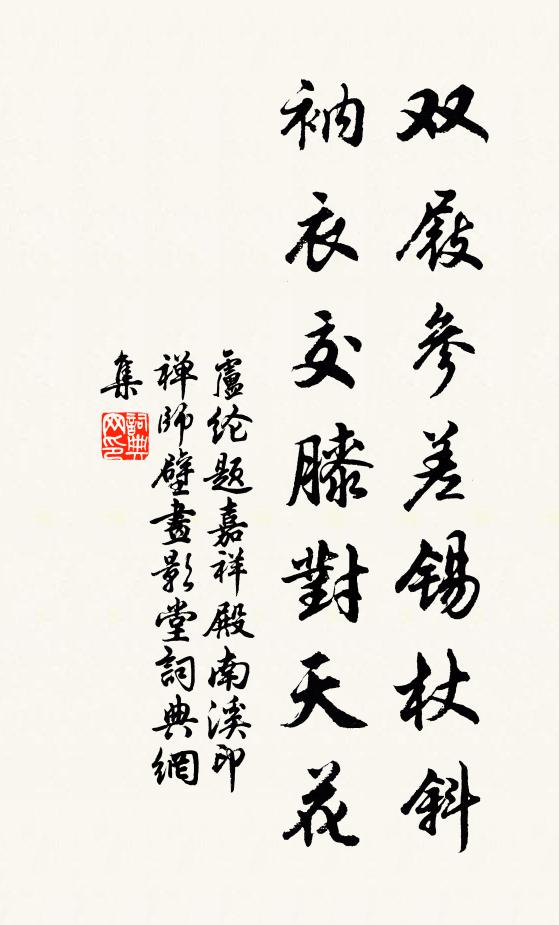 双屐參差锡杖斜
衲衣交膝對天花
盧纶题嘉祥殿南溪印
禅師壁畫影堂詞典網
集
詞典网印